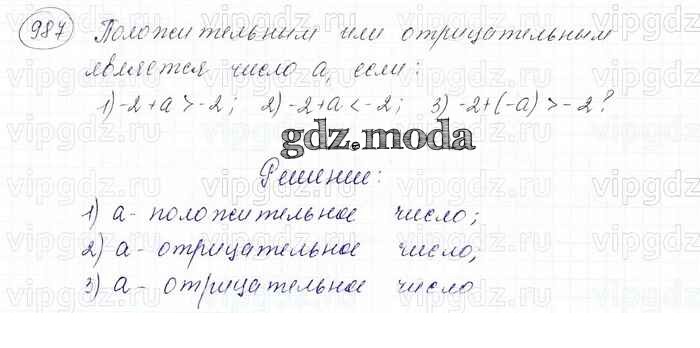 987 Положительным или отрицательным
является число a, если:
1) -2 + a > -2; 2) -2 + a < -2; 3) -2 + (-a) > -2?
gdz.moda
Решение:
1) a - положительное число;
2) a - отрицательное число;
3) a - отрицательное число
vipgdz.ru